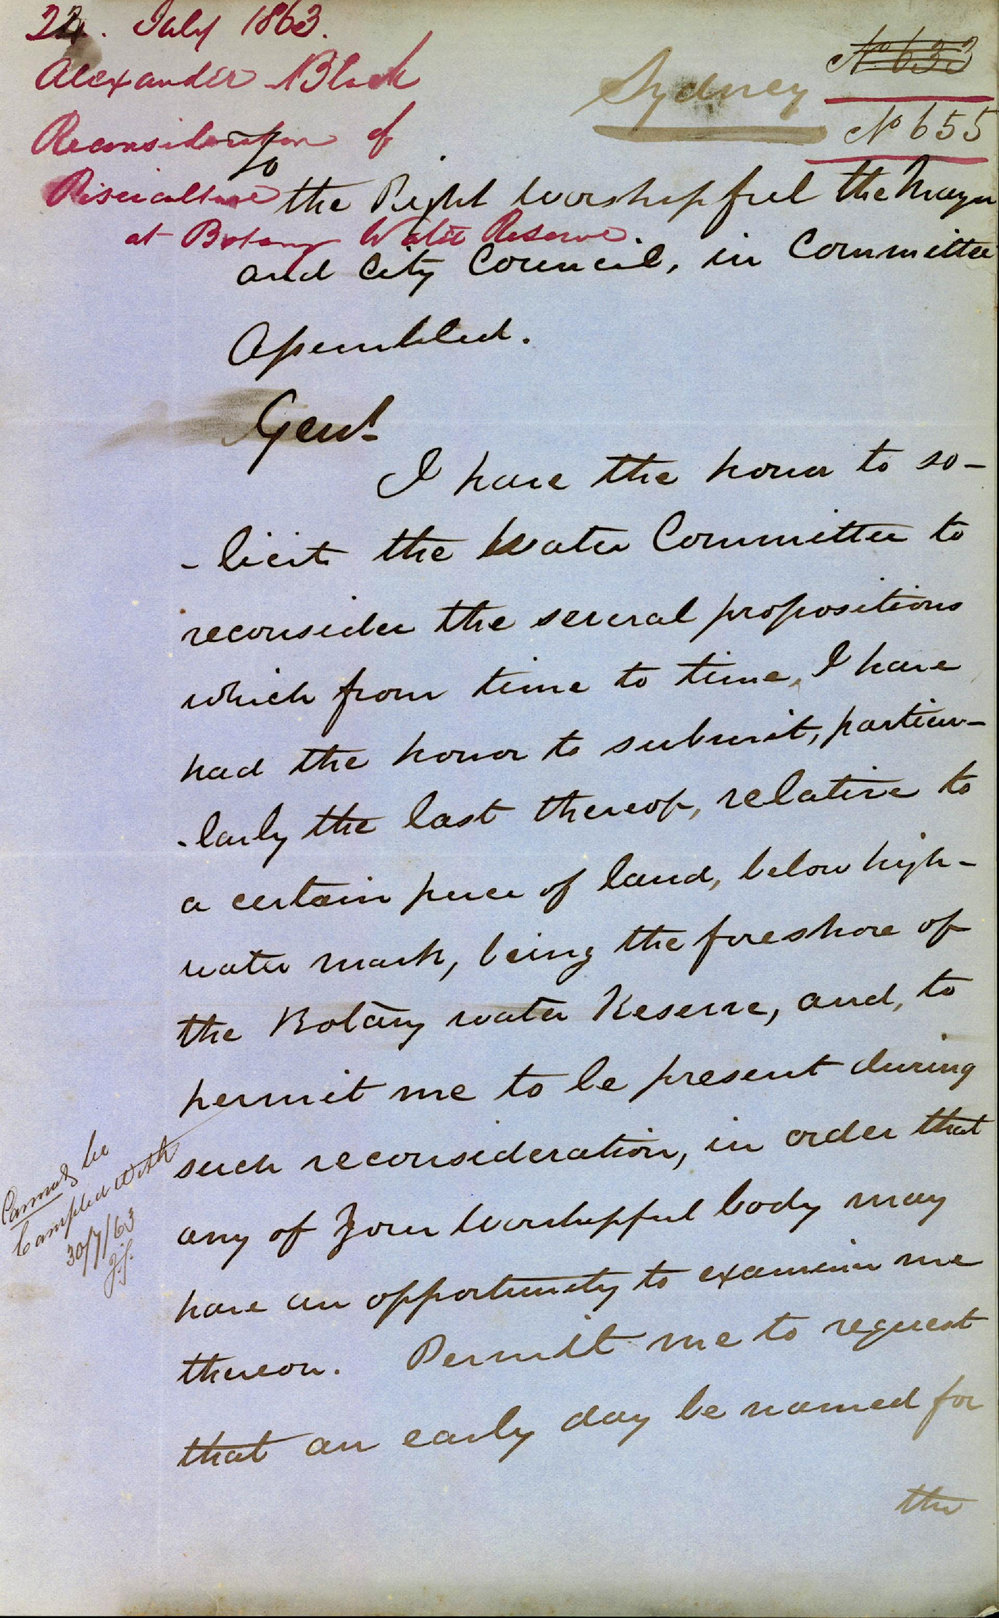 22. July 1863.
Alexander Black
Reconsideration of
Pisciculture
at Botany Water Reserve
Sydney
No 633
No 655
To
the Right Worshipful the Mayor
and City Council, in Committee
Assembled.
Gent.
I have the honor to so-
-licit the Water Committee to
reconsider the several propositions
which from time to time, I have
had the honor to submit, particu-
-larly the last thereof, relative to
a certain piece of land, below high-
water mark, being the foreshore of
the Botany water Reserve, and, to
permit me to be present during
such reconsideration, in order that
any of Your Worshipful body may
have an opportunity to examine me
thereon. Permit me to request
that an early day be named for
the
Cannot be
Complied with
30/7/63